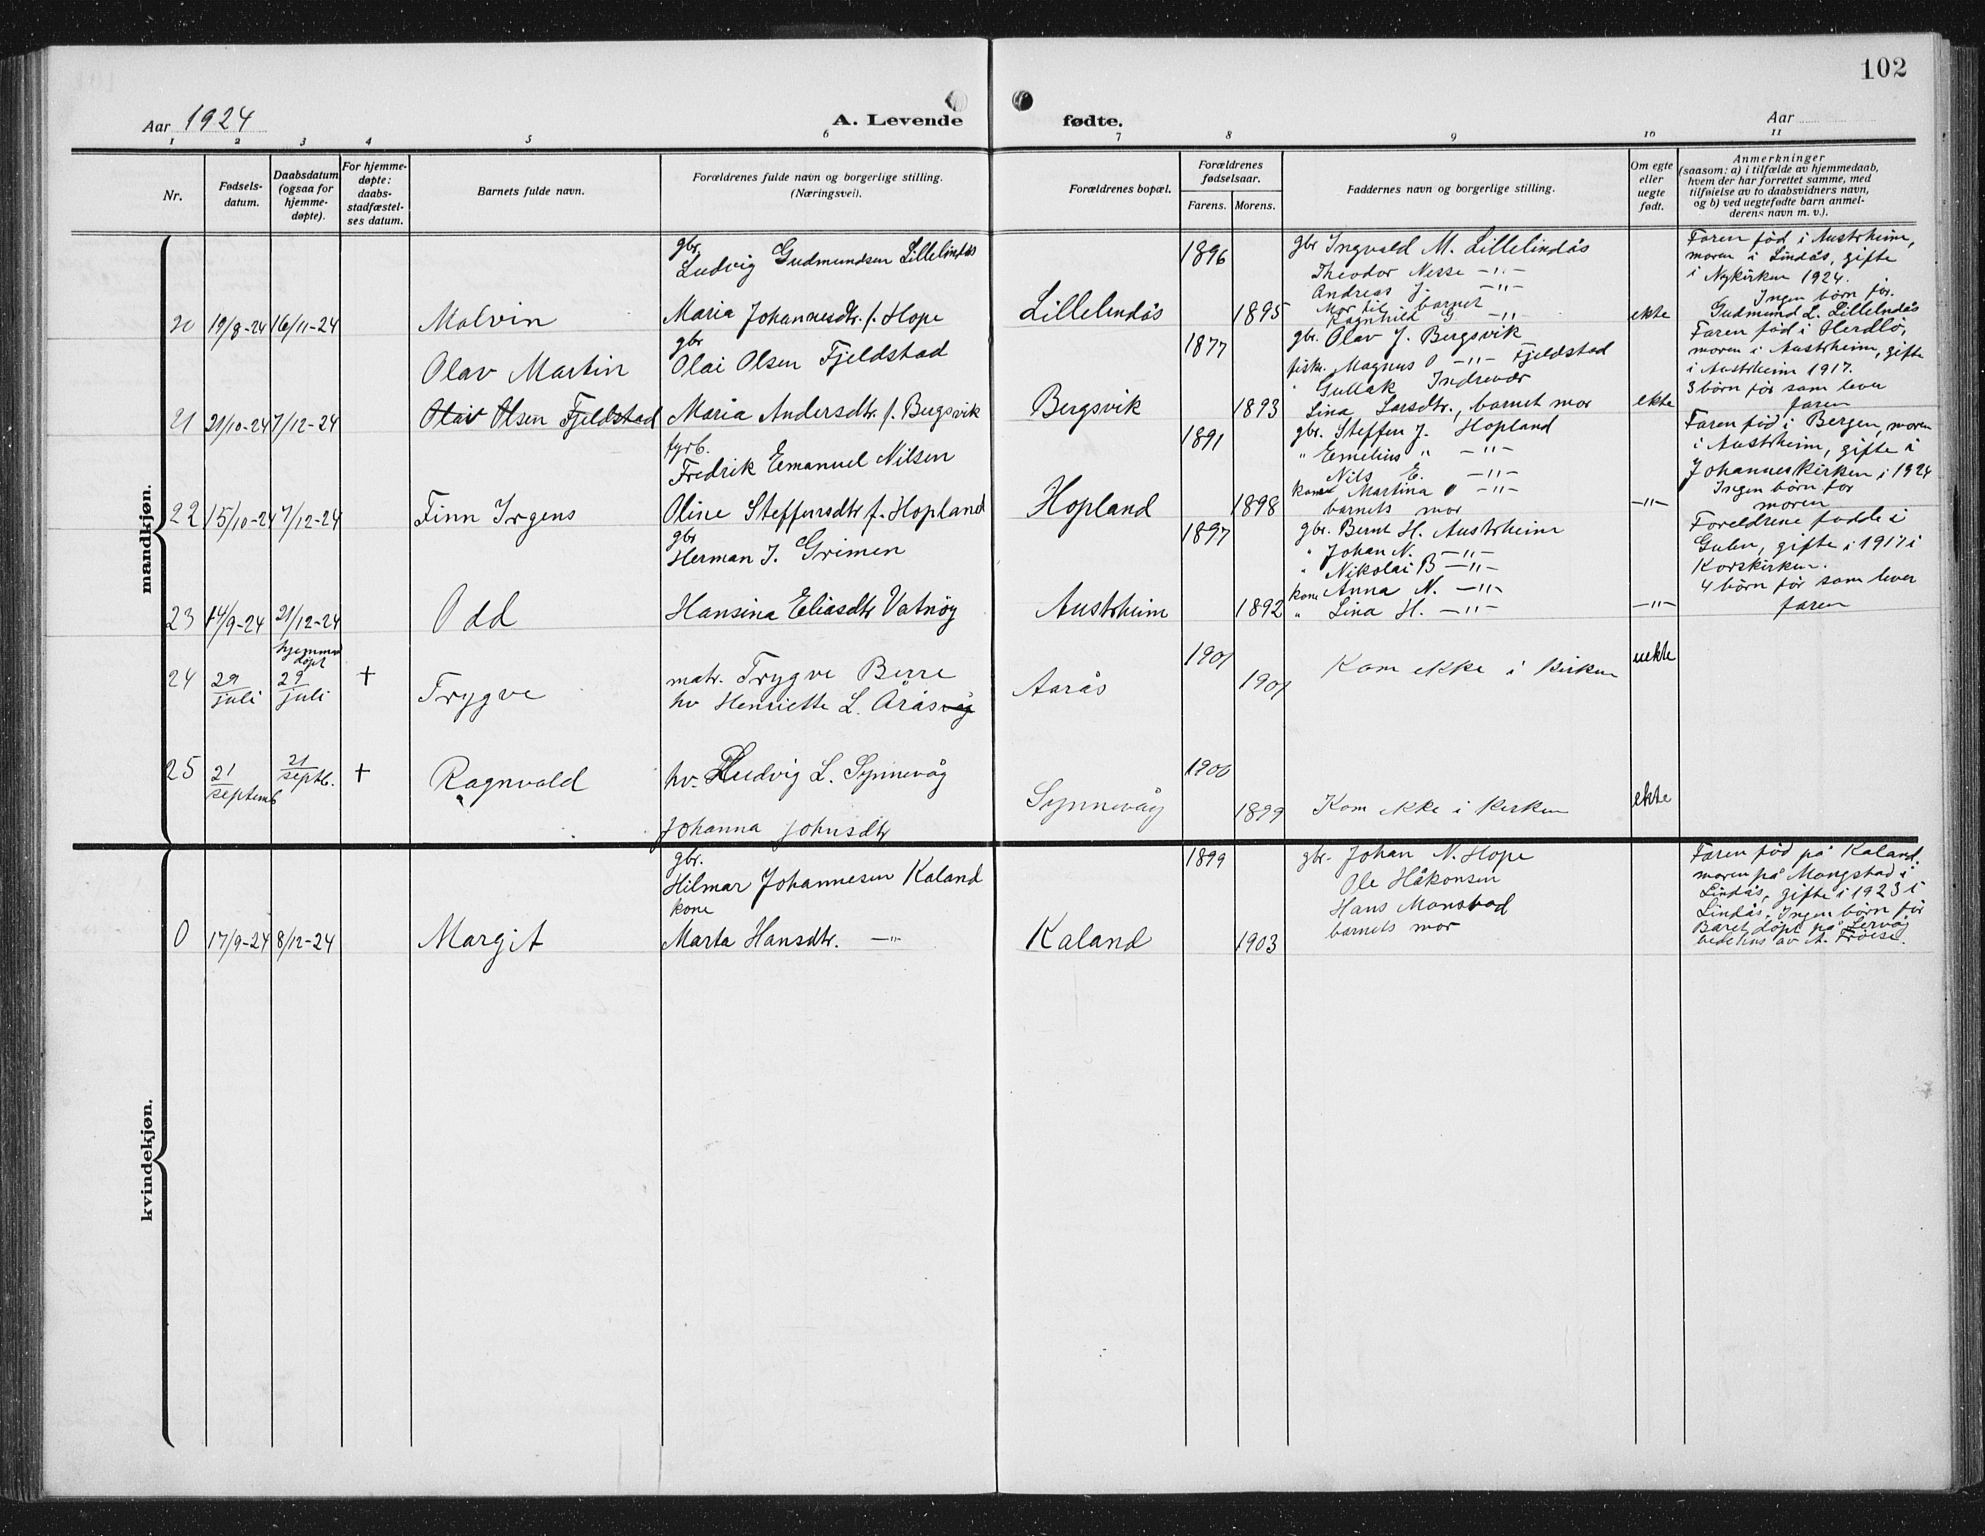 102
Aar 1924
A. Levende fødte.
Aar
1 2 3 4 5 6 7 8 9 10 11
Nr.
Fødsels-
datum.
Daabsdatum
(ogsaa for
hjemme-
døpte).
For hjemme-
døpte:
daabs-
stadfæstel-
ses datum.
Barnets fulde navn.
Forældrenes fulde navn og borgerlige stilling.
(Næringsvei).
Forældrenes bopæl.
Forældrenes
fødselsaar.
Farens. Morens.
Faddernes navn og borgerlige stilling.
Om egte
eller
uegte
født.
Anmerkninger
(saasom: a) i tilfælde av hjemmedaab,
hvem der har forrettet samme, med
tilføielse av to daabsvidners navn,
og b) ved uegtefødte barn anmel-
derens navn m. v.).
mandkjøn.
20 19/8-24 16/11-24
Malvin
gbr
Ludvig Gudmundsen Lillelindås
Maria Johannesdtr. f. Hope
Lillelindås
1896
1895
gbr Ingvald M. Lillelindås
Theodor Nesse -"-
Andreas J. -"-
Mor til barnet
Ragnhild G -"-
ekte
Faren fød i Austrheim,
moren i Lindås, gifte
i Nykirken 1924.
Ingen børn før.
Gudmund L. Lillelindås
21 21/10-24 7/12-24
Olav Martin
Olav Olsen Fjeldstad
gbr
Olai Olsen Fjeldstad
Maria Andersdtr. f. Bergsvik
Bergsvik
1877
1893
gbr. Olav J. Bergsvik
fisk. Magnus O -"- Fjeldstad
" Gullak Indrevær
Lina Larsdtr., barnet mor
ekte
Faren fød i Herdlo,
moren i Austrheim, gifte
i Austrheim 1917.
3 børn før som lever
faren
22 15/10-24 7/12-24
Finn Irgens
fyrb.
Fredrik Emanuel Nilsen
Oline Steffensdtr f. Hopland
Hopland
1891
1898
gbr. Steffen J. Hopland
" Emelius " -"-
Nils E. -"-
kone Martina O -"-
barnets mor
-"-
Faren fød i Bergen, moren
i Austrheim, gifte i
Johanneskirken i 1924
Ingen børn før
moren
23 14/9-24 21/12-24
Odd
gbr
Herman I. Grimen
Hansina Eliasdtr Vatnøy
Austrheim
1897
1892
gbr. Bernt H. Austrheim
" Johan N. -"-
" Nikolai B -"-
kone Anna N. -"-
" Lina H. -"-
-"-
Foreldrene fødde i
Gulen, gifte i 1917 i
Korskirken.
4 børn før som lever
faren
24 29/juli
hjemme
døpt
29/juli
+
Trygve
matr. Trygve Berre
hv Henriette L. Åråsvåg
Aarås
1901
1901
Kom ikke i kirken
uekte
25 21/septemb 21/septb. +
Ragnvald
hv. Ludvig L. Synnevåg
Johanna Johnsdtr
Synnevåg
1900
1899
Kom ikke i kirken
ekte
kvindekjøn.
0 17/9-24 8/12-24
Margit
gbr.
Hilmar Johannesen Kaland
kone
Marta Hansdtr. -"-
Kaland
1899
1903
gbr. Johan N. Hope
Ole Håkonsen
Hans Monstad
barnets mor
Faren fød på Kaland,
moren på Mongstad i
Lindås, gifte i 1923 i
Lindås. Ingen børn før
Baret døpt på Lervåg
bedehus av A. Frøise.